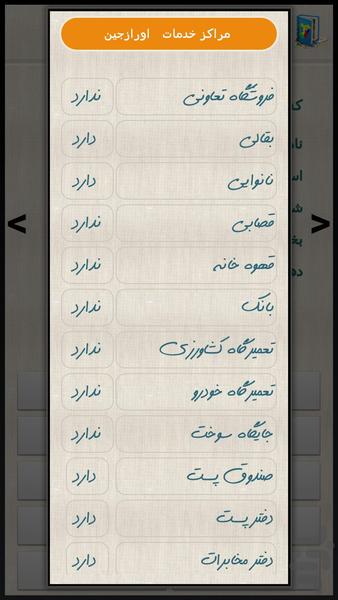 مراکز خدمات اورازجین
فروشگاه تعاونی ندارد
بقالی دارد
نانوایی دارد
قصابی ندارد
قهوه خانه ندارد
بانک ندارد
تعمیرگاه کشاورزی ندارد
تعمیرگاه خودرو ندارد
جایگاه سوخت ندارد
صندوق پست دارد
دفتر پست دارد
دفتر مخابرات دارد